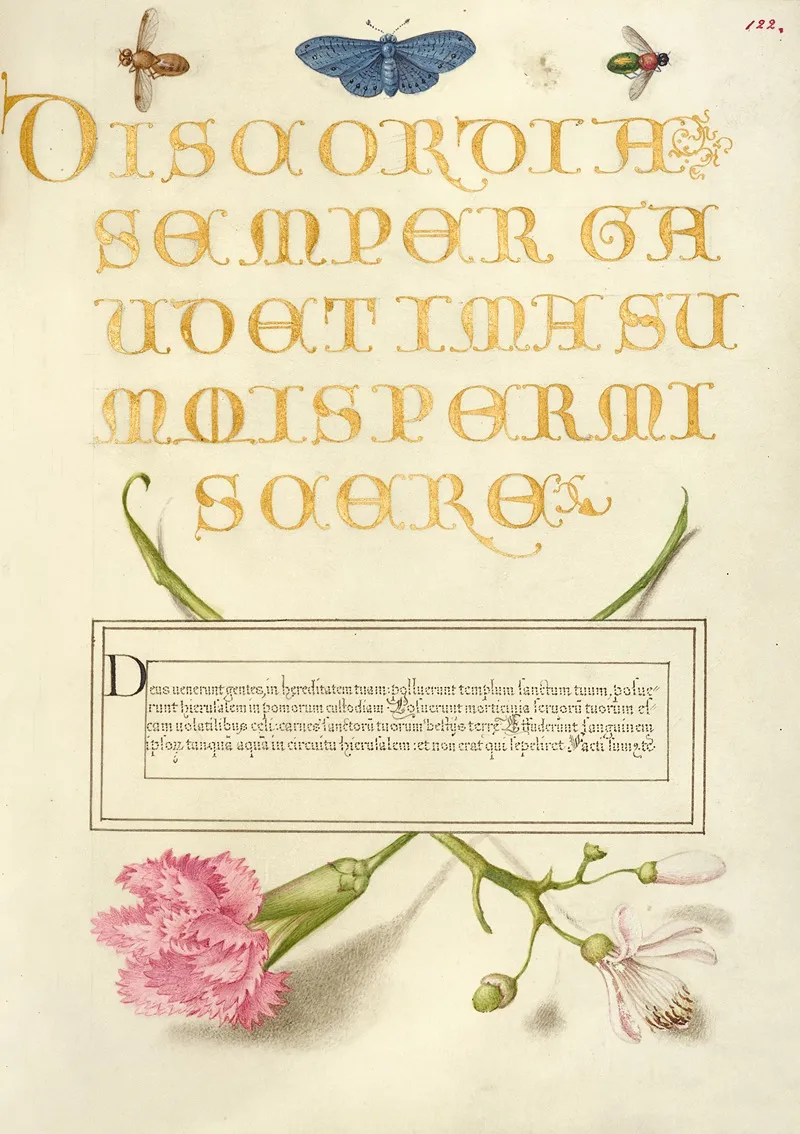 122.
DISCORDIA
SEMPER GA
UDET IMA SU
MMIS PERMI
SCERE
Deus uenerunt gentes, in hereditatem tuam: polluerunt templum sanctum tuum, posue-
runt hierusalem in pomorum custodiam Posuerunt morticinia seruorū tuorum es-
cam uolatilibus celi: carnes sanctorū tuorum bestijs terrę Effuderunt sanguinem
ipsoꝝ tanquā aquā in circuitu hierusalem: et non erat qui sepeliret Facti sumꝰ tc.